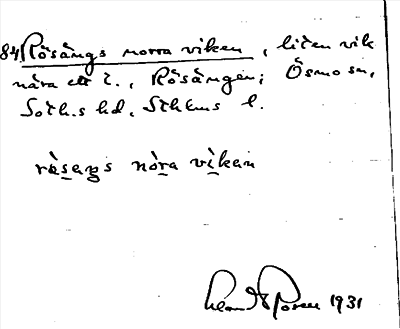 84 Rösängs norra viken, liten vik
nära ett t., Rösängen; Ösmo sn,
Soth.s hd, Sthlms l.
ràsaŋs nòra vìkan
1931